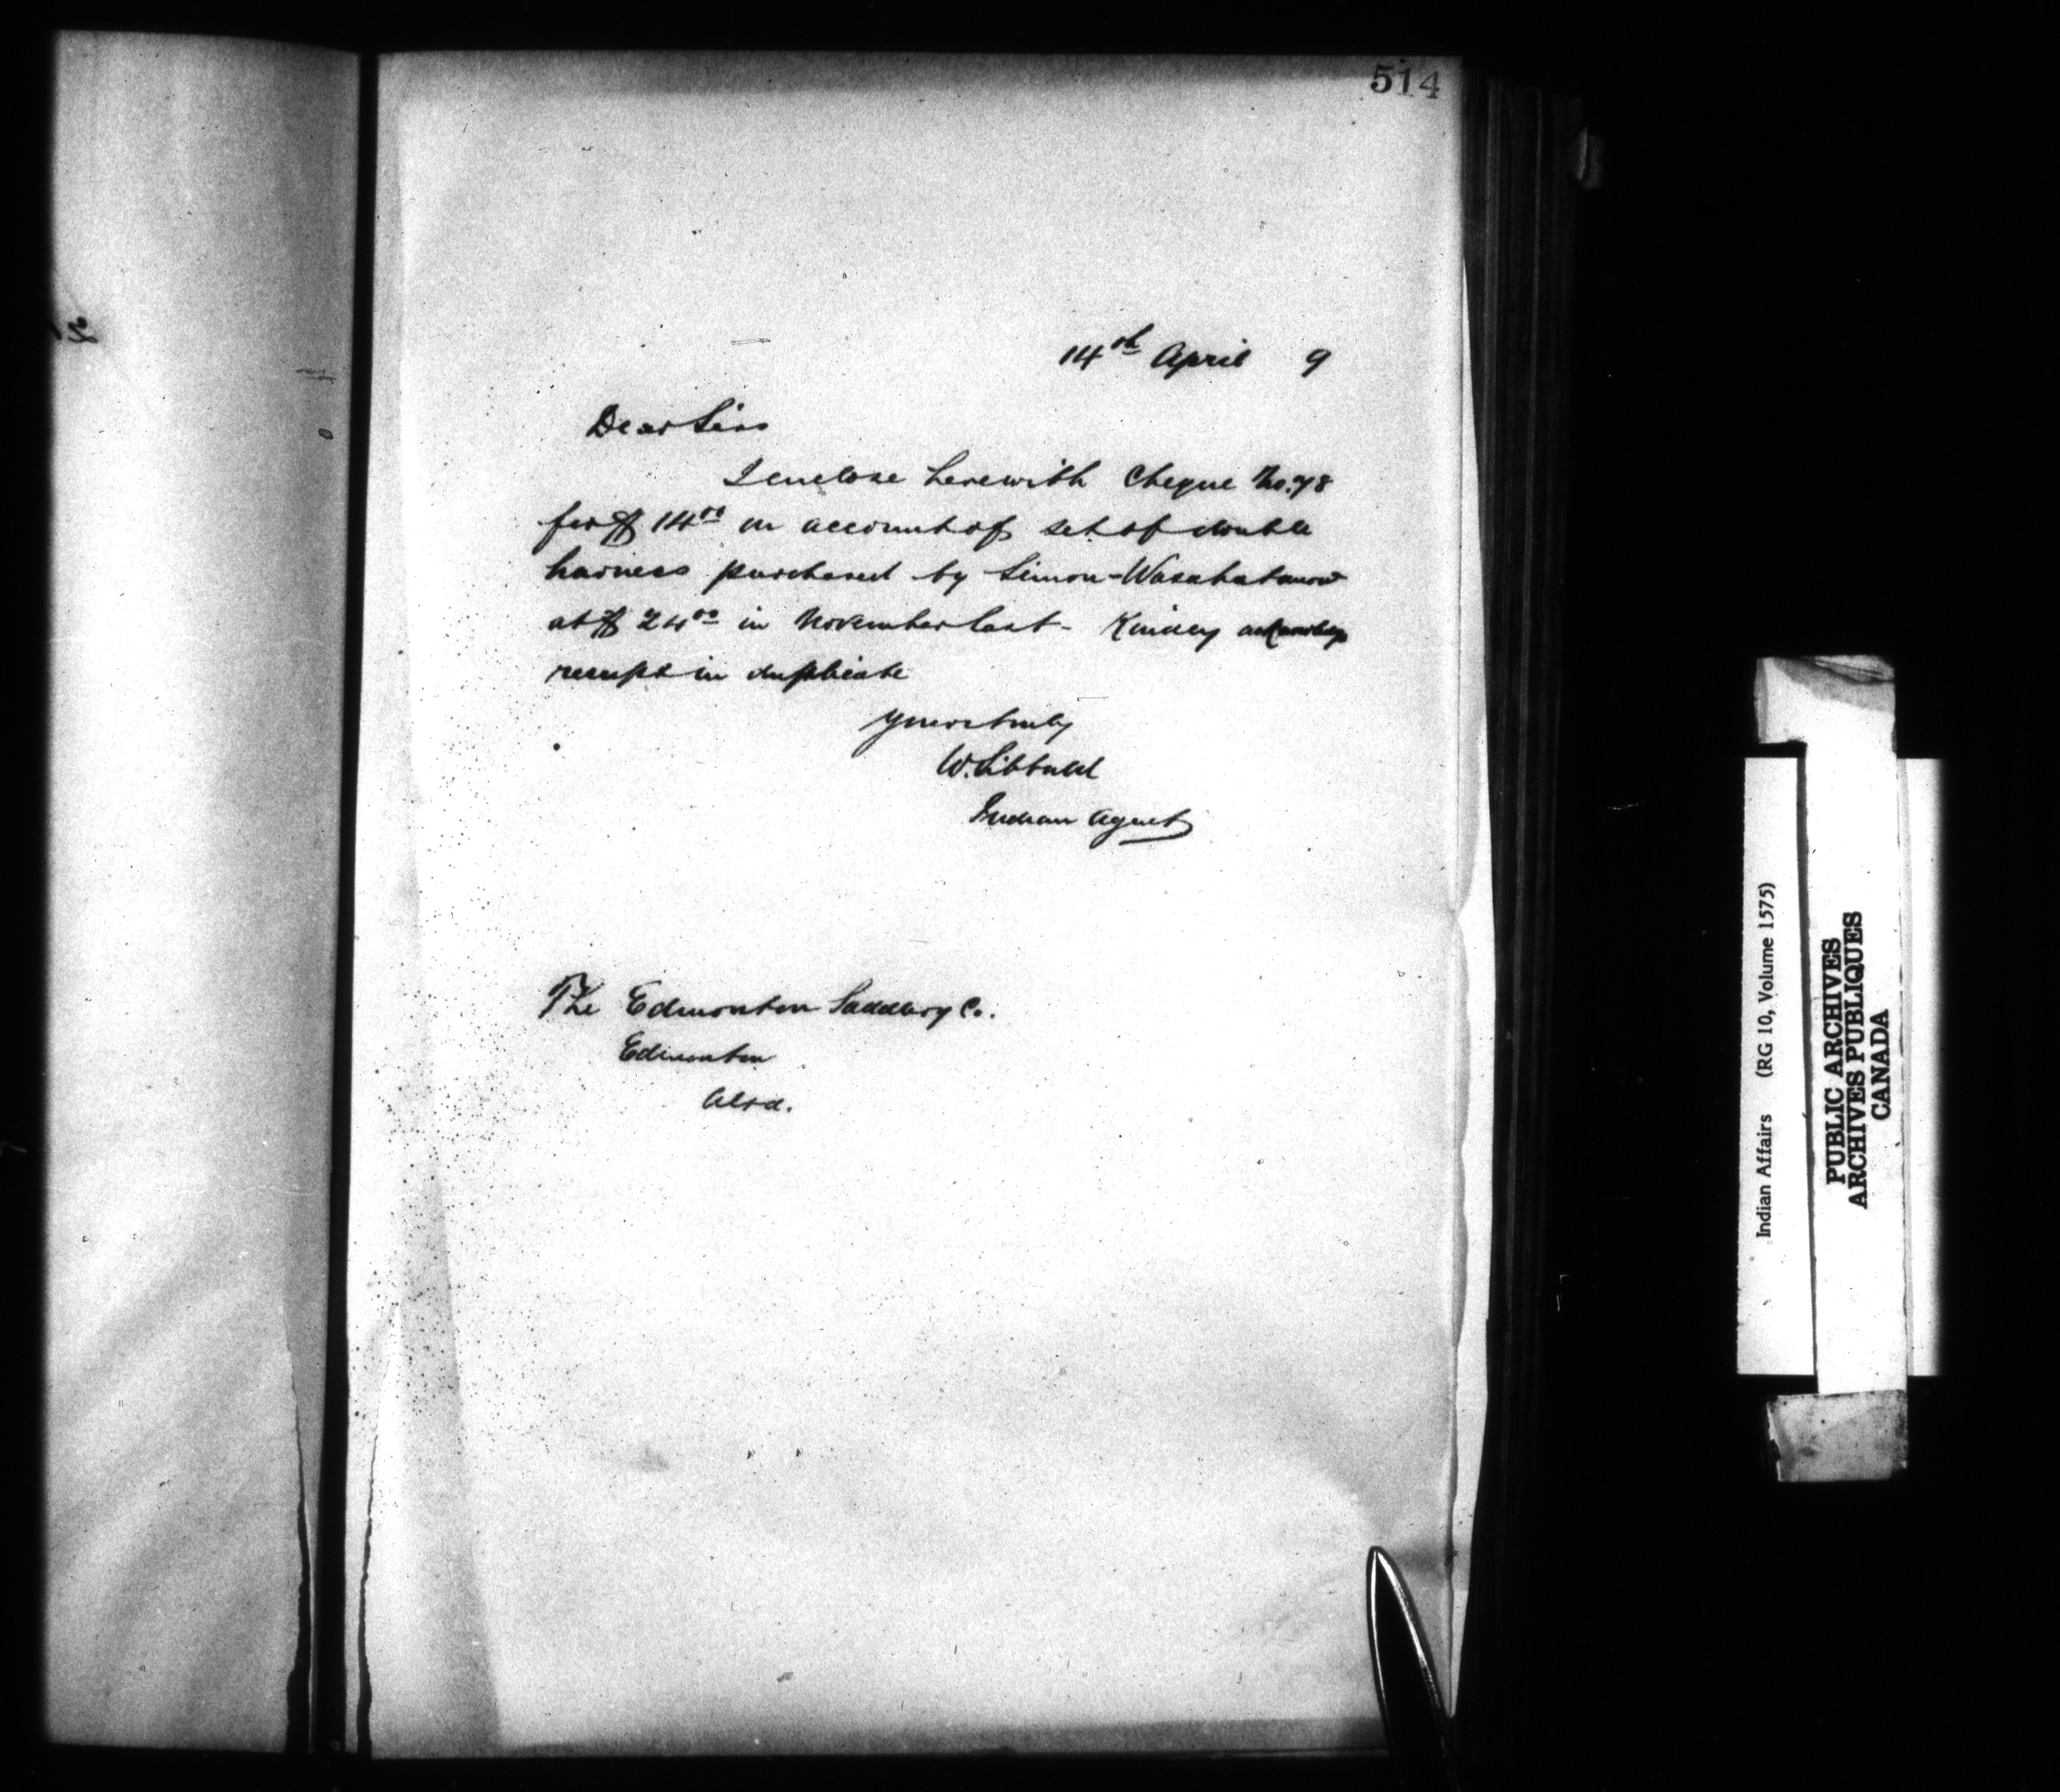 514
14th April 9
Dear Sirs
I enclose herewith Cheque No. 78
for $ 14 00 on account of set of double
harness purchased by Simon-
at $ 24 00 in November last - Kindly acknowlege
receipt in duplicate
Yours truly
W. Sibbald
Indian Agent
The Edmonton Saddlery Co.
Edmonton
Alta.
Indian Affairs (RG 10, Volume 1575)
PUBLIC ARCHIVES
ARCHIVES PUBLIQUES
CANADA